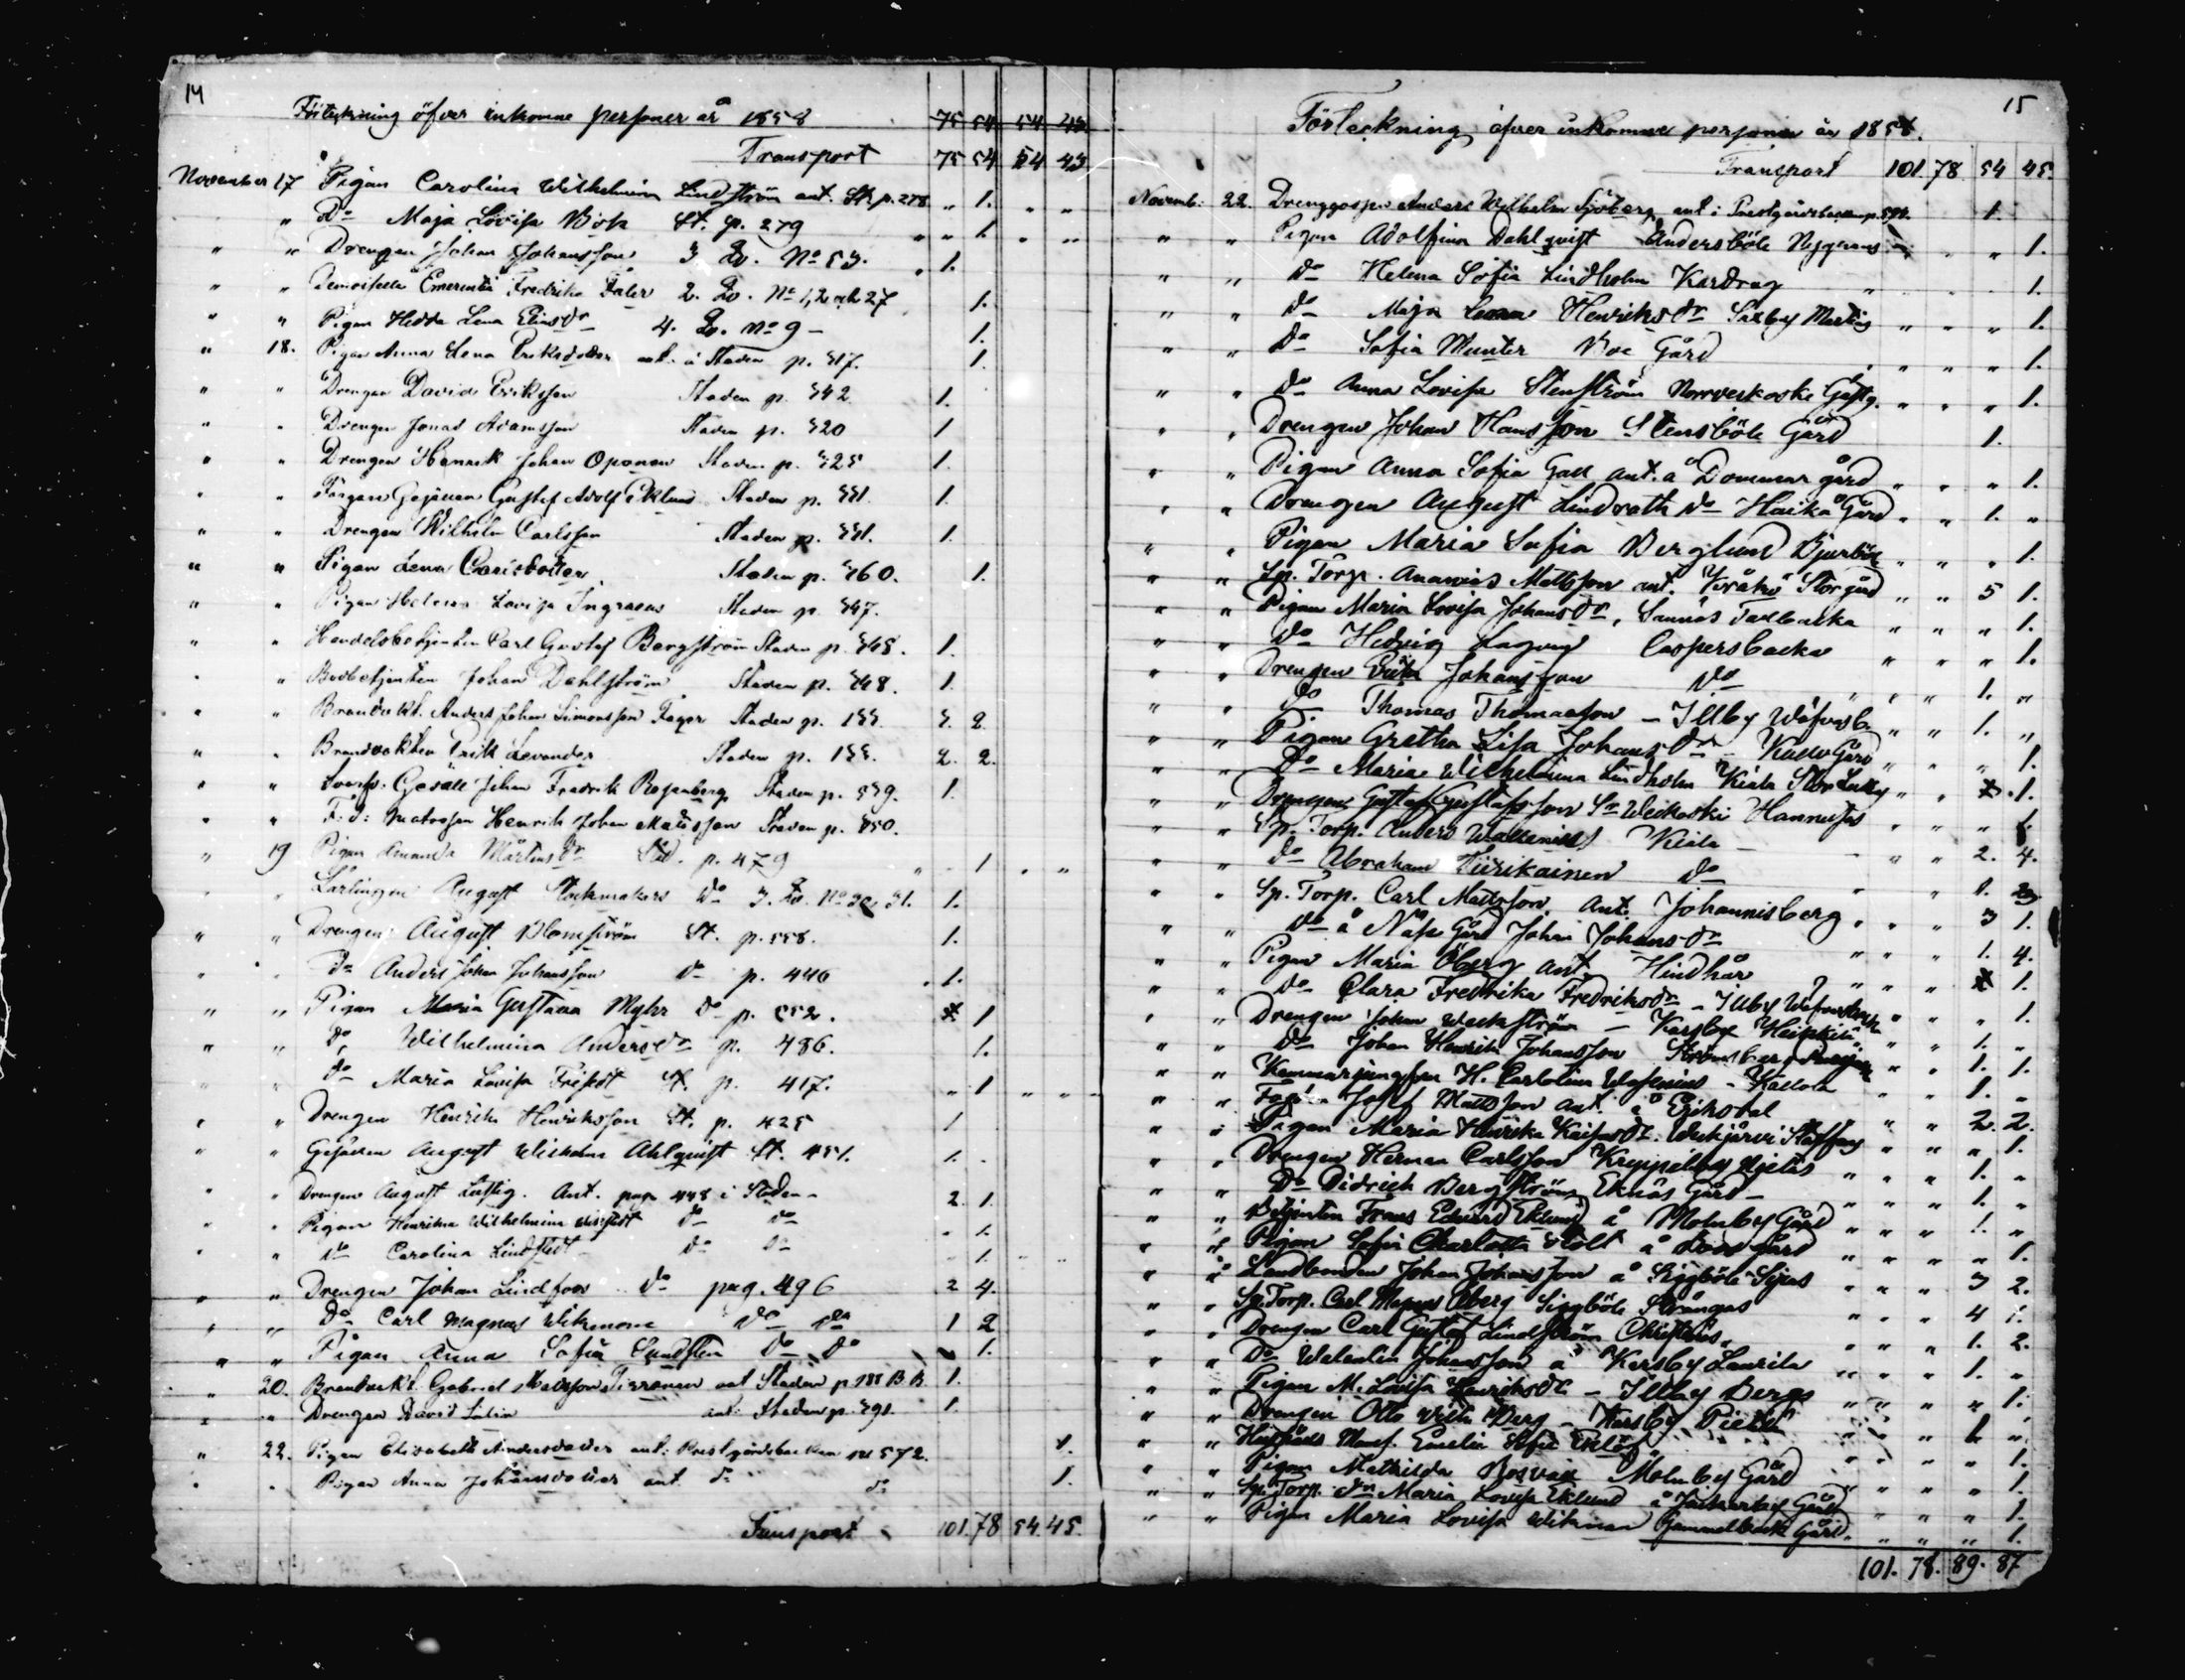 14
Förteckning öfver inkomne personer år 1858 75 54 54 43
Transport 75 54 54 43
November 17 Pigan Carolina Wilhelmina Lindström ant. St. p. 278 " 1. " "
" Do Maja Lovisa Böök St. p. 279 " " 1 " "
" " Drengen Johan Johansson 3 Qv. No 53. " 1.
" " Demoiselle Emerentia Fredrika Faler 2. Qv. No 1, 2 och 27 1.
" " Pigan Hedda Lena Eliasdr 4. Qv. No 9 – 1.
" 18. Pigan Anna Lena Eriksdotter ant. i Staden p. 317. 1.
" " Drengen David Eriksson Staden p. 342 1.
" " Drengen Jonas Adamsson Staden p. 320 1
" " Drengen Henrik Johan Oponen Staden p. 325 1.
" " Gesällen Gustaf Adolf Eklund Staden p. 331. 1.
" " Drengen Wilhelm Carlsson Staden p. 331. 1.
" " Pigan Lena Carlsdotter Staden p. 360. 1.
" " Pigan Helena Lovisa Ingraeus Staden p. 347.
" " Handelsbetjenten Carl Gustaf Bergström Staden p. 345. 1.
" " Bodbetjenten Johan Dahlström Staden p. 348. 1.
" " Brandvakt. Anders Johan Simonsson Fager Staden p. 155. 3. 2.
" " Brandvakten Erik Levander Staden p. 155. 2. 2.
" " Gesäll Johan Fredrik Rosenberg Staden p. 539. 1.
" " F. d. Matrosen Henrik Johan Matsson Staden p. 550.
" 19 Pigan Amanda Mårtensdr Stad. p. 479 " 1 " "
" " Lärlingen August Stockmakars Do 3. Qv. No 30, 31. 1.
" " Drengen August Blomström St. p. 558. 1.
" " Do Anders Johan Johansson do p. 446 1.
" " Pigan Maria Gustava Myhr do p. 552. 1
" " Do Wilhelmina Andersdr p. 486. 1.
" " do Maria Lovisa St. p. 417. " 1 " "
" " Drengen Henrik Henriksson St. p. 425 1
" " Gesällen August Wilhelm Ahlqvist St. 451. 1.
" " Drengen August Lustig. Ant. pag. 448 i Staden – 2. 1.
" " Pigan Henrika Wilhelmina do do " 1.
" " Do Carolina Lindstedt do do " 1. " "
" " Drengen Johan Lindfors do pag. 496 2 4.
" " Do Carl Magnus Wikmom do do 1 2
" " Pigan Anna Sofia Sundsten do do 1.
" 20. Brandvakt. Gabriel Matsson Tirronen ant Staden p 155 B. B. 1.
" " Drengen David Sulin ant. Staden p. 391. 1.
" 22. Pigan Elisabeth Andersdotter ant. Prestgårdsbacken pag 572. 1.
" " Pigan Anna Johansdotter ant. do do 1.
Transport 101. 78 54. 45.
15
Förteckning öfver inkomne personer år 1858.
Transport 101. 78 54 45.
Novemb: 22. Drenggossen Anders Wilhelm Sjöberg ant i Prestgårdsbacken p. 1
" " Pigan Adolfina Dahlqvist Andersböle Nyggnas " 1.
" " do Helena Sofia Lindholm Kardrag " 1.
" " do Maja Leena Henriksdr Saxby Mårtens " " " 1.
" " do Sofia Munter Boe Gård " " " 1.
" " do Anna Lovisa Stenström Norrveckoski Gästg. " " " 1.
" " Drengen Johan Hansson Stensböle Gård 1.
" " Pigan Anna Sofia Gall ant. å Dommar gård " " " 1.
" " Drengen August Lindroth do Haiko Gård " " 1. "
" " Pigan Maria Sofia Berglund Bjurböle " " " 1.
" " Sp. Torp. Ananias Mattsson ant. Kråkö Storgård " " 5 1.
" " Pigan Maria Lovisa Johansdr, Sannäs Tallbacka " " " 1.
" " Do Hedvig Lagerq Caspersbacka " " " 1.
" " Drengen Erik Johansson do " " 1. "
" " do Thomas Thomasson – Illby Wäfvarsb. " " 1. "
" " Pigan Gretha Lisa Johansdr – Kullo Gård " " " 1.
" " Do Maria Wilhelmina Lindholm Kiala Stor Lukky " " 1.
" " Drengen Gustaf Gustafsson Sr Weckoski Hannusas " " " 1.
" " Sp. Torp. Anders Wallenius Kiala – " " 2. 4.
" " do Abraham Tiirikainen do " " 1. 2
" " Sp. Torp. Carl Mattsson Ant. Johannisberg " " 3 1.
" " do å Näse Gård Johan Johansdr " " 1. 4.
" " Pigan Maria Öberg ant. Hindhår " " 1.
" " do Clara Fredrika Fredriksdr – Illby Wäfvarsbacka " " " 1.
" " Drengen Johan Weckström – Karsby Heikkilä " " 1. "
" " Do Johan Henrik Johansson Strömsberg " " 1. 1.
" " Kammarjungfrun H. Carolina Wasenius – Kallola " " 1. "
" " Josef Mattsson ant. å Epikodal " " 2. 2.
" " Pigan Maria Henrika Kaisasdr. Weckjärvi Staffans " " " 1.
" " Drengen Herman Carlsson Kreppelby Njelas " " 1. "
" " Do Didrich Bergström Eknäs Gård – " " 1. "
" " Betjenten Frans Edvard Eklund å Molnby Gård " " 1. "
" " Pigan Sofia Charlotta Stolt å Boe Gård " " " 1.
" " Landbonden Johan Johansson å Siggböle Sijus " " 3 2.
" " Sp. Torp. Carl Magnus Åberg Siggböle Strångas " " 4 1.
" " Drengen Carl Gustaf Lindström Christinäs " " 1. 2.
" " Do Walentin Johansson å Karsby Laurila " " 1. "
" " Pigan M. Lovisa Henriksdr – Illby Bergs " " " 1.
" " Drengen Otto Wilh. Berg – Karsby Piekkola " " 1. "
" " Hushålls Mamf. Emelie Sofie Eklöf " " " 1.
" " Pigan Mathilda Rosvall Molnby Gård " " " 1.
" " Sp. Torp. dr Maria Lovisa Eklund å Jackarby Gård " " " 1.
" " Pigan Maria Lovisa Wikman Gammelbacka Gård " " " 1.
101. 78. 89. 87